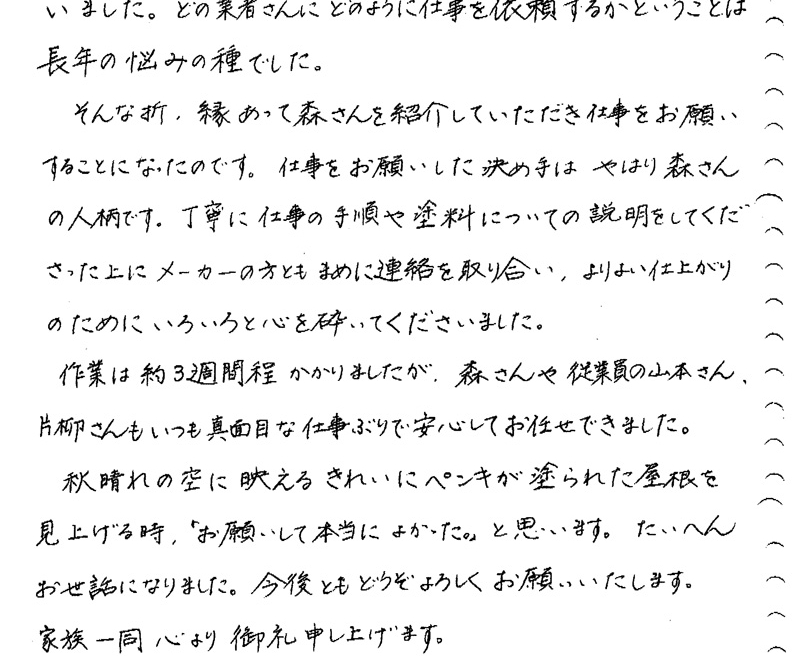 いました。どの業者さんにどのように仕事を依頼するかということは
長年の悩みの種でした。
そんな折、縁あって森さんを紹介していただき仕事をお願い
することになったのです。仕事をお願いした決め手はやはり森さん
の人柄です。丁寧に仕事の手順や塗料についての説明をしてくだ
さった上にメーカーの方ともまめに連絡を取り合い、よりよい仕上がり
のためにいろいろと心を砕いてくださいました。
作業は約3週間程かかりましたが、森さんや従業員の山本さん、
片柳さんもいつも真面目な仕事ぶりで安心してお任せできました。
秋晴れの空に映えるきれいにペンキが塗られた屋根を
見上げる時、「お願いして本当によかった。」と思います。たいへん
お世話になりました。今後ともどうぞよろしくお願いいたします。
家族一同心より御礼申し上げます。